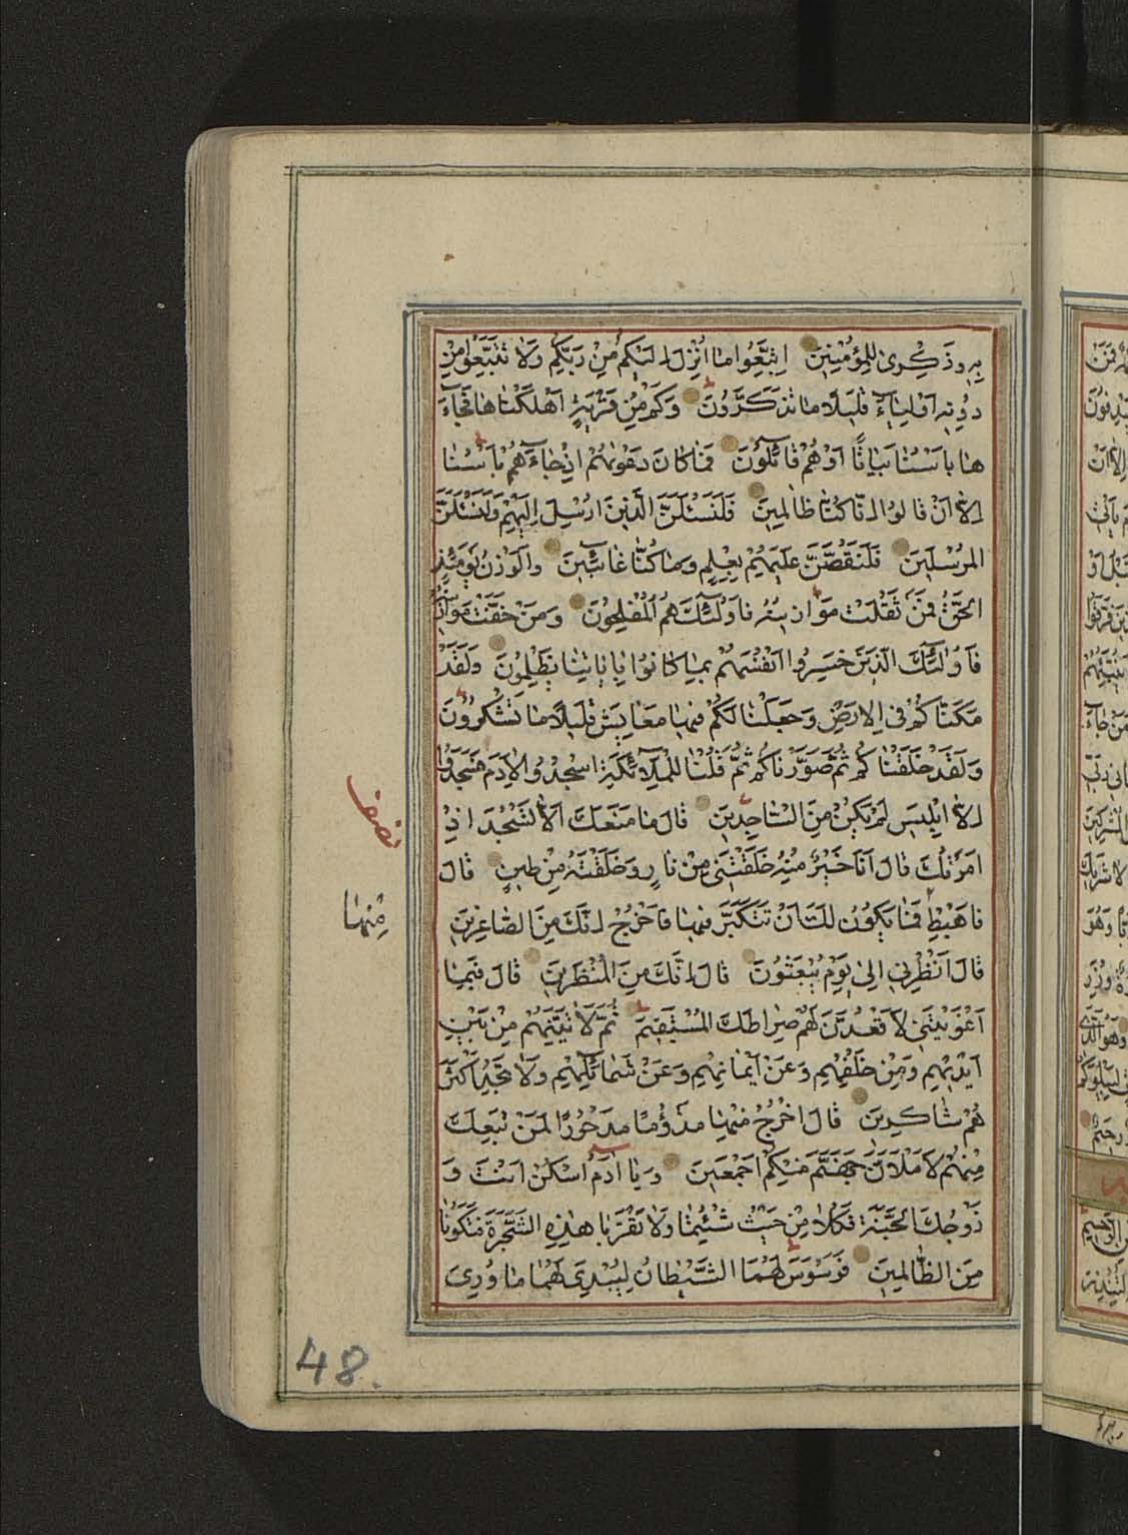 بِهِ وَذِكْرىٰ لِلْمُؤْمِنِينَ اِتَّبِعُوا مَا اُنْزِلَ اِلَيْكُمْ مِنْ رَبِّكُمْ وَلَا تَتَّبِعُوا مِنْ
دُونِهِ اَوْلِيَاءَ قَلِيلًا مَا تَذَكَّرُونَ وَكَمْ مِنْ قَرْيَةٍ اَهْلَكْنَاهَا فَجَاءَ
هَا بَاْسُنَا بَيَاتًا اَوْ هُمْ قَائِلُونَ فَمَا كَانَ دَعْوٰيهُمْ اِذْ جَاءَهُمْ بَاْسُنَا
اِلَّا اَنْ قَالُوا اِنَّا كُنَّا ظَالِمِينَ فَلَنَسْئَلَنَّ الَّذِينَ اُرْسِلَ اِلَيْهِمْ وَلَنَسْئَلَنَّ
الْمُرْسَلِينَ فَلَنَقُصَّنَّ عَلَيْهِمْ بِعِلْمٍ وَمَا كُنَّا غَائِبِينَ وَالْوَزْنُ يَوْمَئِذٍ
الْحَقُّ فَمَنْ ثَقُلَتْ مَوَازِينُهُ فَاُولٰئِكَ هُمُ الْمُفْلِحُونَ وَمَنْ خَفَّتْ مَوَازِينُهُ
فَاُولٰئِكَ الَّذِينَ خَسِرُوا اَنْفُسَهُمْ بِمَا كَانُوا بِاٰيَاتِنَا يَظْلِمُونَ وَلَقَدْ
مَكَّنَّاكُمْ فِي الْاَرْضِ وَجَعَلْنَا لَكُمْ فِيهَا مَعَايِشَ قَلِيلًا مَا تَشْكُرُونَ
وَلَقَدْ خَلَقْنَاكُمْ ثُمَّ صَوَّرْنَاكُمْ ثُمَّ قُلْنَا لِلْمَلَائِكَةِ اسْجُدُوا لِاٰدَمَ فَسَجَدُوا
اِلَّا اِبْلِيسَ لَمْ يَكُنْ مِنَ السَّاجِدِينَ قَالَ مَا مَنَعَكَ اَلَّا تَسْجُدَ اِذْ
اَمَرْتُكَ قَالَ اَنَا خَيْرٌ مِنْهُ خَلَقْتَنِي مِنْ نَارٍ وَخَلَقْتَهُ مِنْ طِينٍ قَالَ
فَاهْبِطْ فَمَا يَكُونُ لَكَ اَنْ تَتَكَبَّرَ فِيهَا فَاخْرُجْ اِنَّكَ مِنَ الصَّاغِرِينَ
قَالَ اَنْظِرْنِي اِلىٰ يَوْمِ يُبْعَثُونَ قَالَ اِنَّكَ مِنَ الْمُنْظَرِينَ قَالَ فَبِمَا
اَغْوَيْتَنِي لَاَقْعُدَنَّ لَهُمْ صِرَاطَكَ الْمُسْتَقِيمَ ثُمَّ لَاٰتِيَنَّهُمْ مِنْ بَيْنِ
اَيْدِيهِمْ وَمِنْ خَلْفِهِمْ وَعَنْ اَيْمَانِهِمْ وَعَنْ شَمَائِلِهِمْ وَلَا تَجِدُ اَكْثَرَ
هُمْ شَاكِرِينَ قَالَ اخْرُجْ مِنْهَا مَذْؤُمًا مَدْحُورًا لَمَنْ تَبِعَكَ
مِنْهُمْ لَاَمْلَاَنَّ جَهَنَّمَ مِنْكُمْ اَجْمَعِينَ وَيَا اٰدَمُ اسْكُنْ اَنْتَ وَ
زَوْجُكَ الْجَنَّةَ فَكُلَا مِنْ حَيْثُ شِئْتُمَا وَلَا تَقْرَبَا هٰذِهِ الشَّجَرَةَ فَتَكُونَا
مِنَ الظَّالِمِينَ فَوَسْوَسَ لَهُمَا الشَّيْطَانُ لِيُبْدِيَ لَهُمَا مَا وُرِيَ
نصف
مِنْهَا
48.